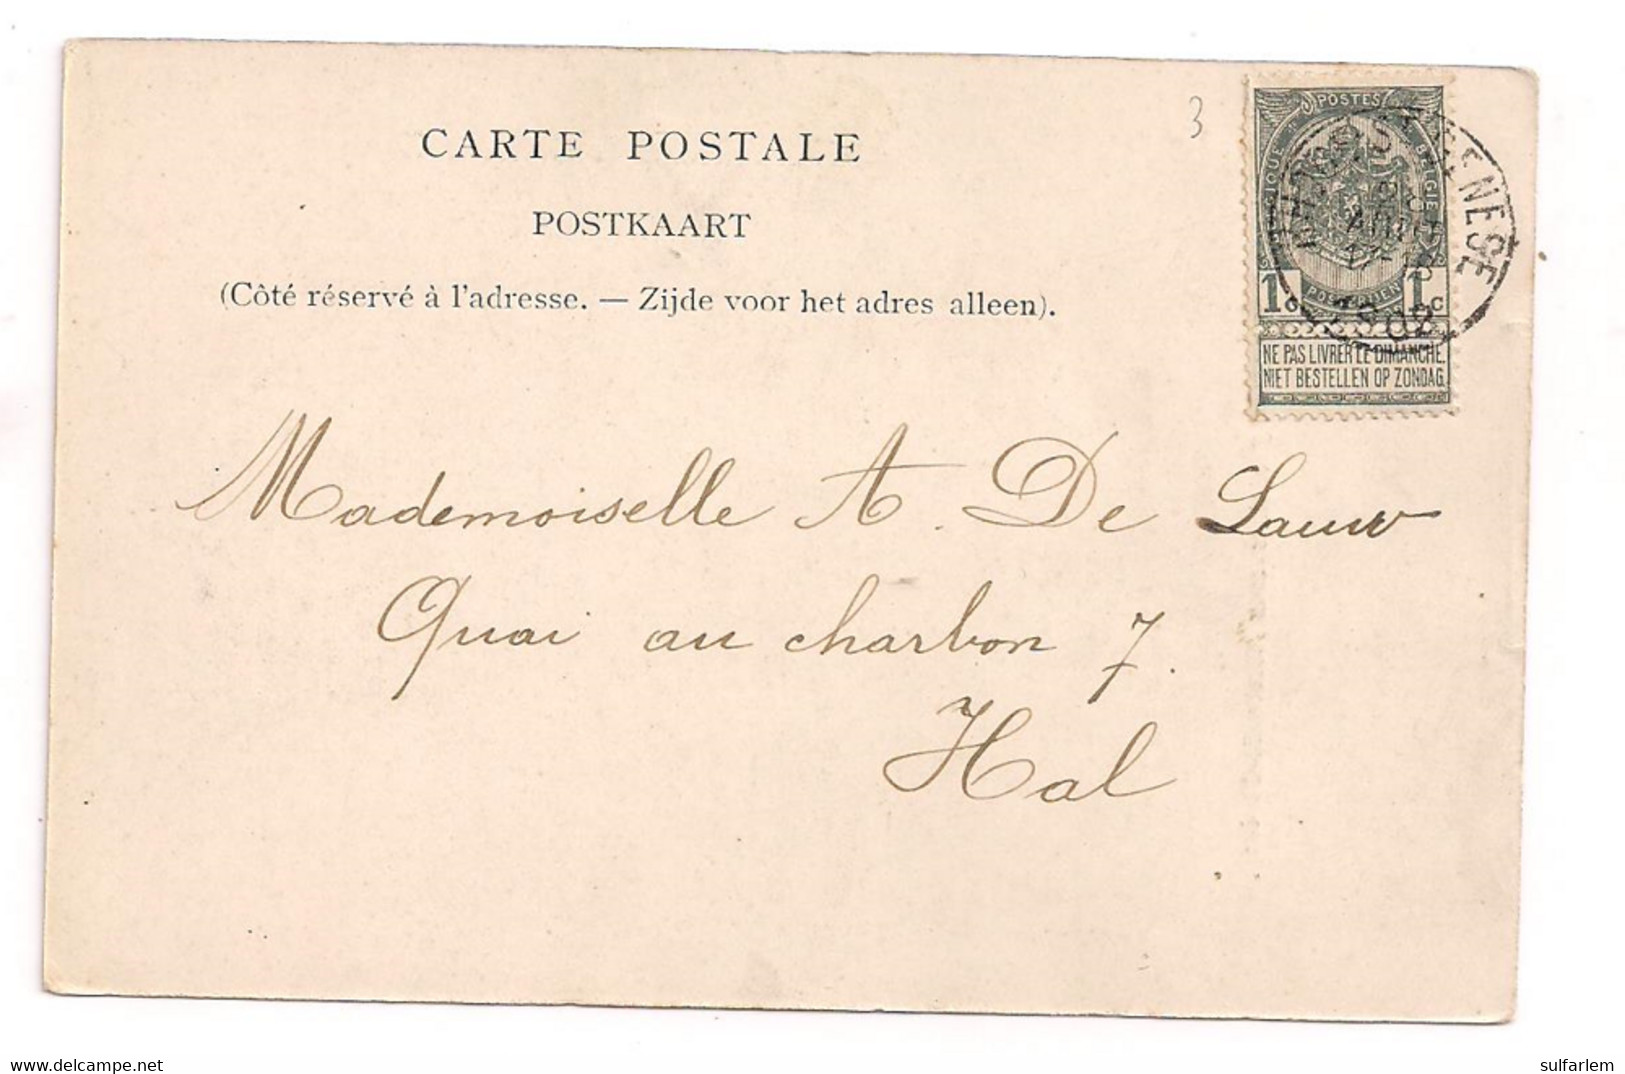 3
CARTE POSTALE
POSTKAART
(Côté réservé à l'adresse. — Zijde voor het adres alleen).
POSTES
BELGIE
1c 1c
NE PAS LIVRER LE DIMANCHE
NIET BESTELLEN OP ZONDAG
Mademoiselle A. De Lauw
Quai au charbon 7.
Hal
www.delcampe.net
sulfarlem